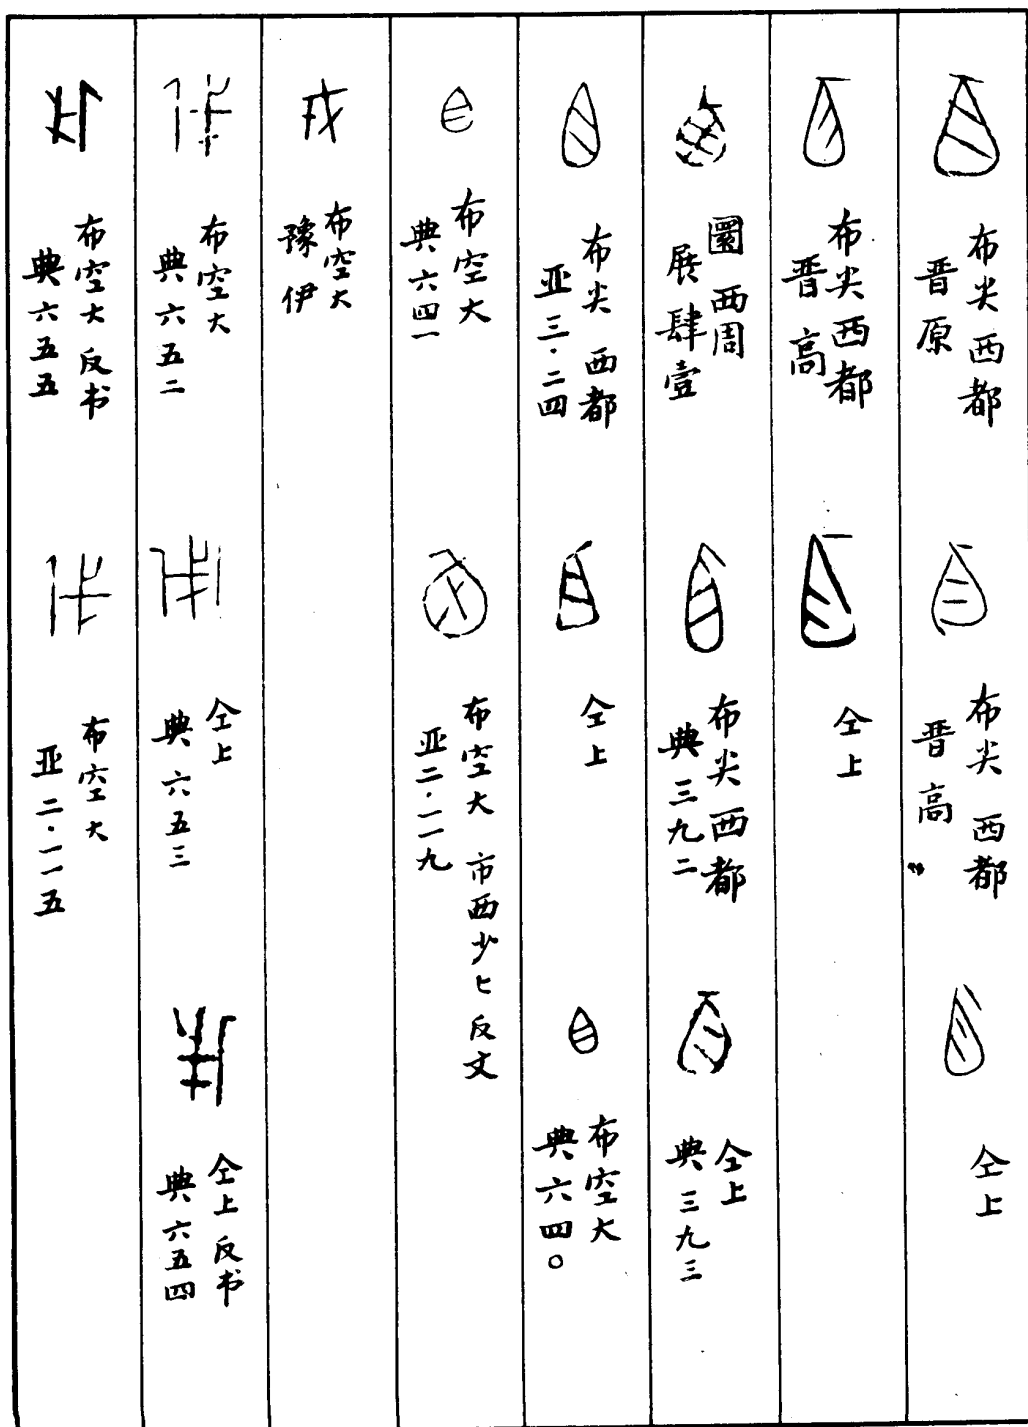 布尖 西都
晋原
布尖 西都
晋高
仝上
布尖 西都
晋高
仝上
圜 西周
展 肆壹
布尖 西都
典 三九二
仝上
典 三九三
布尖 西都
亚 三·二四
仝上
布空大
典 六四〇
布空大
典 六四一
布空大 市西少匕 反文
亚 二·一一九
布空大
豫伊
布空大
典 六五二
仝上
典 六五三
仝上 反书
典 六五四
布空大 反书
典 六五五
布空大
亚 二·一一五